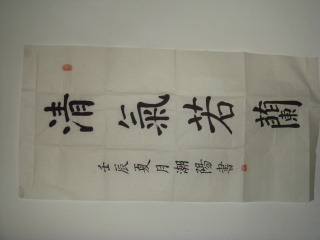 清氣若蘭
壬辰夏月潮陽書